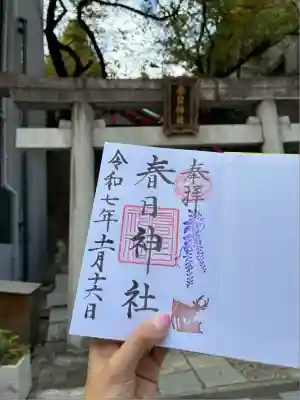 春日神社
奉拝
春日神社
令和七年十一月十六日